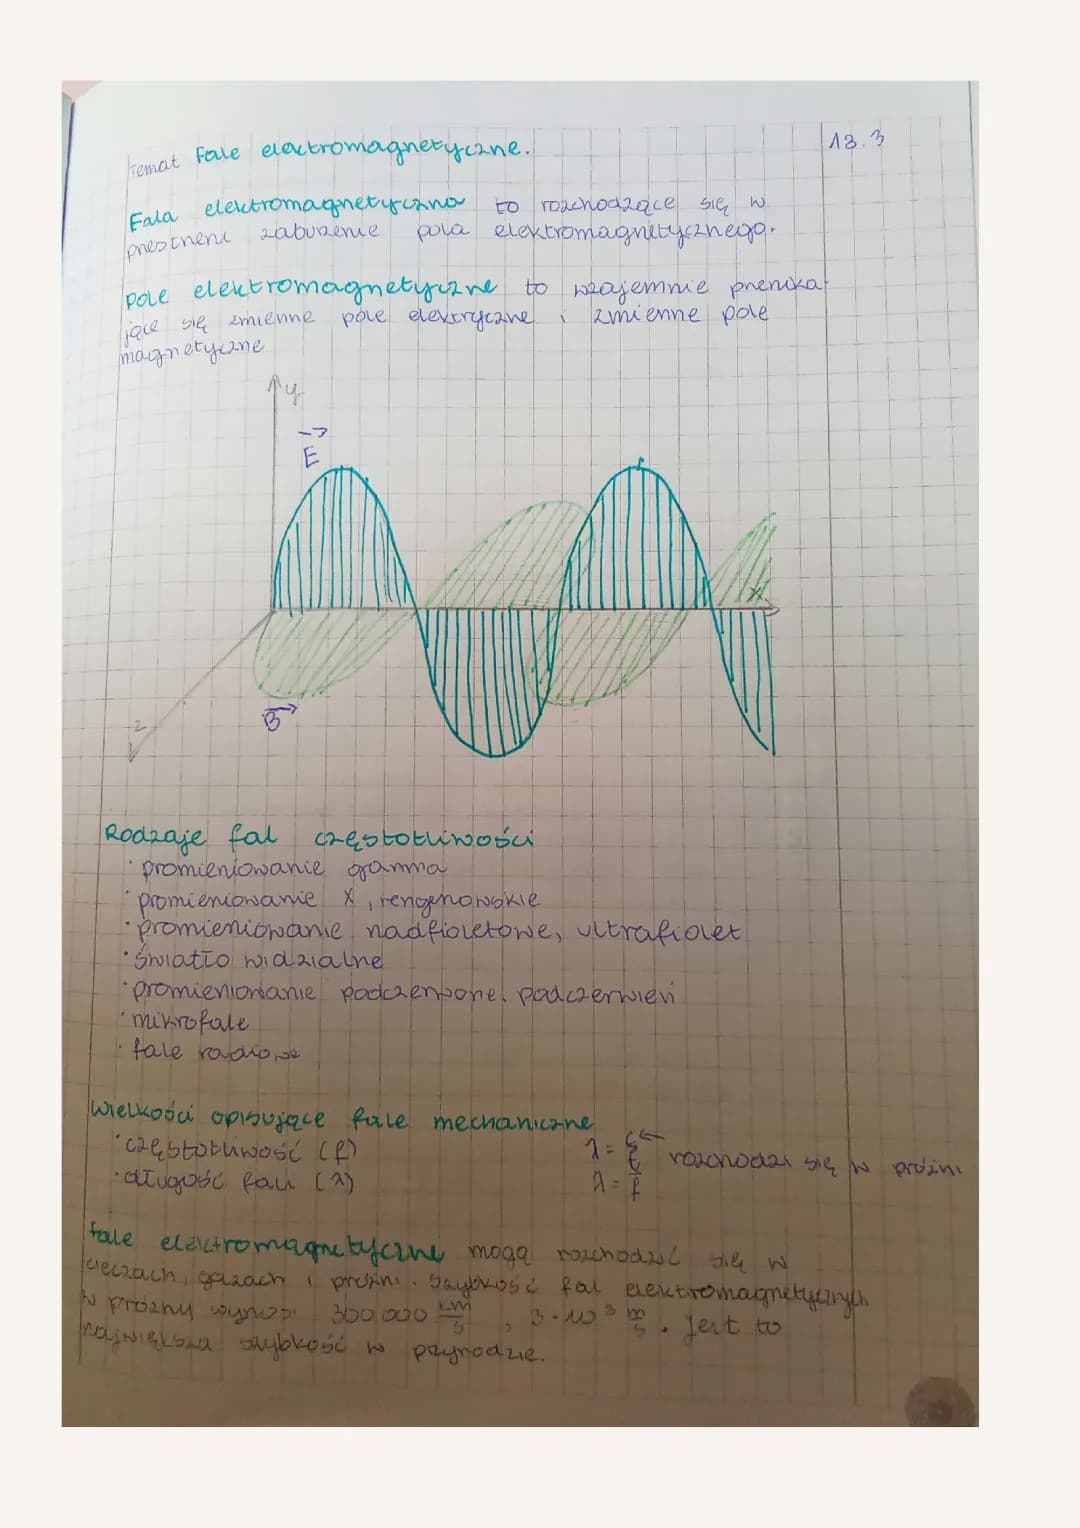 Temat Fale elektromagnetyczne.
13.3
Fala elektromagnetyczna to rozchodzące się w
przestrzeni zaburzenie pola elektromagnetycznego.
pole elektromagnetyczne to wzajemnie przenika
jące się zmienne pole elektryczne i zmienne pole
magnetyczne
y
E
x
B
z
Rodzaje fal częstotliwości
· promieniowanie gamma
· promieniowanie X, rengenowskie
· promieniowanie nadfioletowe, ultrafiolet
· światło widzialne
· promieniowanie podczerwone, podczerwień
· mikrofale
· fale radiowe
Wielkości opisujące fale mechaniczne
· częstotliwość (f)
λ = c/f ← rozchodzi się w próżni
· długość fali (λ)
λ =
fale elektromagnetyczne mogą rozchodzić się w
cieczach, gazach i próżni. Szybkość fal elektromagnetycznych
w próżny wynosi 300 000 km/s, 3·10³ m/s. Jest to
największa szybkość w przyrodzie.